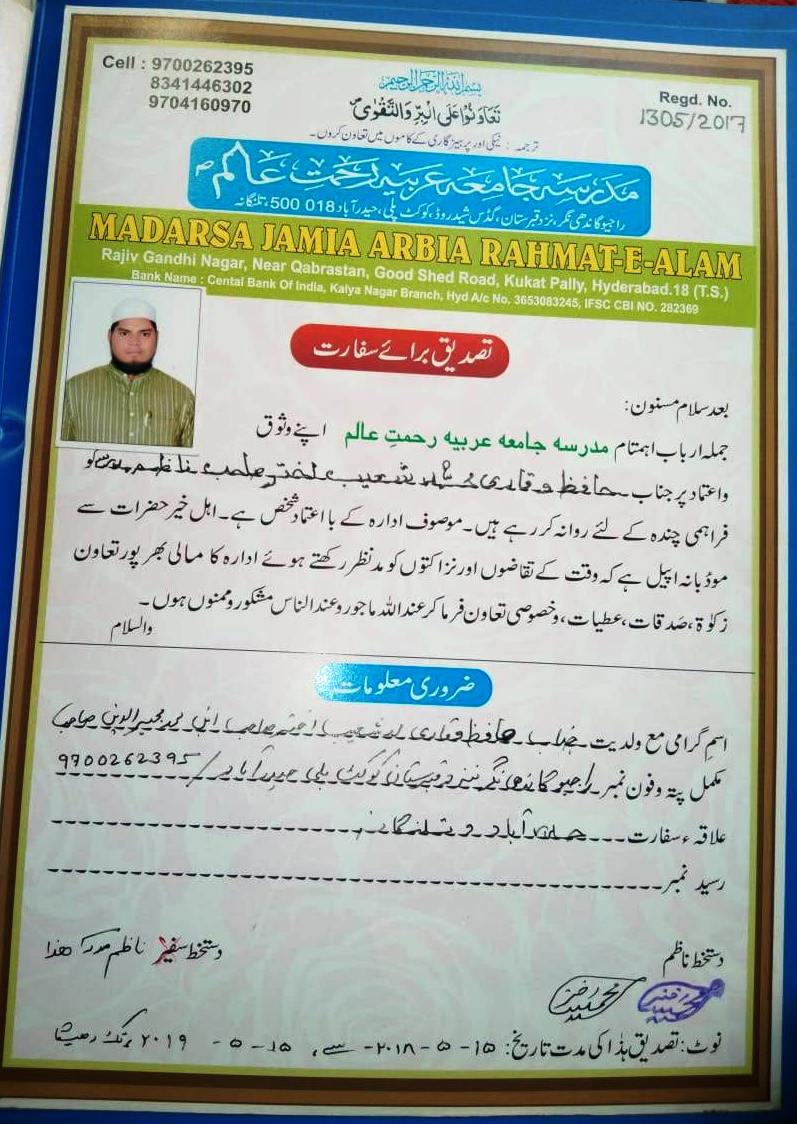 Cell : 9700262395
8341446302
9704160970
بسم اللہ الرحمن الرحیم
تعاونوا علی البر والتقوٰی
ترجمہ : نیکی اور پرہیزگاری کے کاموں میں تعاون کروں۔
Regd. No.
1305/2017
مدرسہ جامعہ عربیہ رحمتِ عالم ﷺ
راجیو گاندھی نگر، نزد قبرستان، گڈس شیڈ روڈ، کوکٹ پلی، حیدرآباد 018 500، تلنگانہ
MADARSA JAMIA ARBIA RAHMAT-E-ALAM
Rajiv Gandhi Nagar, Near Qabrastan, Good Shed Road, Kukat Pally, Hyderabad.18 (T.S.)
Bank Name : Cental Bank Of India, Kalya Nagar Branch, Hyd A/c No. 3653083245, IFSC CBI NO. 282369
تصدیق برائے سفارت
بعد سلام مسنون:
جملہ ارباب اہمتام مدرسہ جامعہ عربیہ رحمتِ عالم اپنے وثوق
واعتماد پر جناب حافظ و قاری محمد شعیب اختر صاحب ناظم مدرسہ کو
فراہمی چندہ کے لئے روانہ کر رہے ہیں۔ موصوف ادارہ کے بااعتماد شخص ہے۔ اہل خیر حضرات سے
موڈبانہ اپیل ہے کہ وقت کے تقاضوں اور نزاکتوں کو مدنظر رکھتے ہوئے ادارہ کا مالی بھر پور تعاون
زکوٰۃ، صدقات، عطیات، وخصوصی تعاون فرما کر عنداللہ ماجور و عندالناس مشکور و ممنوں ہوں۔
والسلام
ضروری معلومات
اسم گرامی مع ولدیت جناب حافظ و قاری محمد شعیب اختر صاحب ابن محمد مجیر الدین صاحب
مکمل پتہ و فون نمبر راجیو گاندھی نگر نزد قبرستان کوکٹ پلی حیدرآباد / 9700262395
علاقہء سفارت حیدرآباد و تلنگانہ
رسید نمبر
دستخط ناظم
دستخط سفیر ناظم مدرسہ ھذا
نوٹ: تصدیق ہذا کی مدت تاریخ: ۱۵-۵-۲۰۱۸ سے، ۱۵-۵-۲۰۱۹ تک